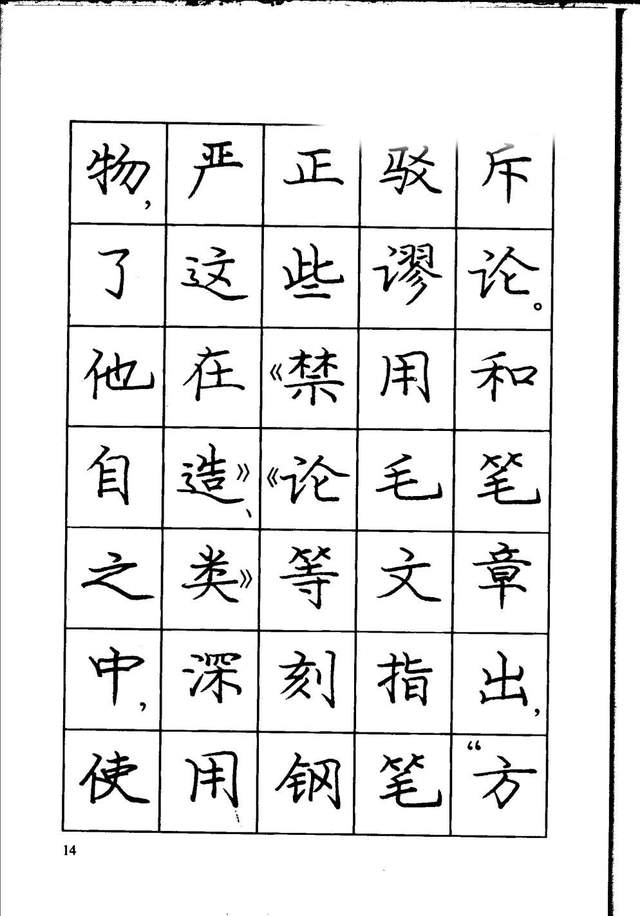 物，严正驳斥
了这些谬论。
他在《禁用和
自造》、《论毛笔
之类》等文章
中，深刻指出，
使用钢笔“方
14